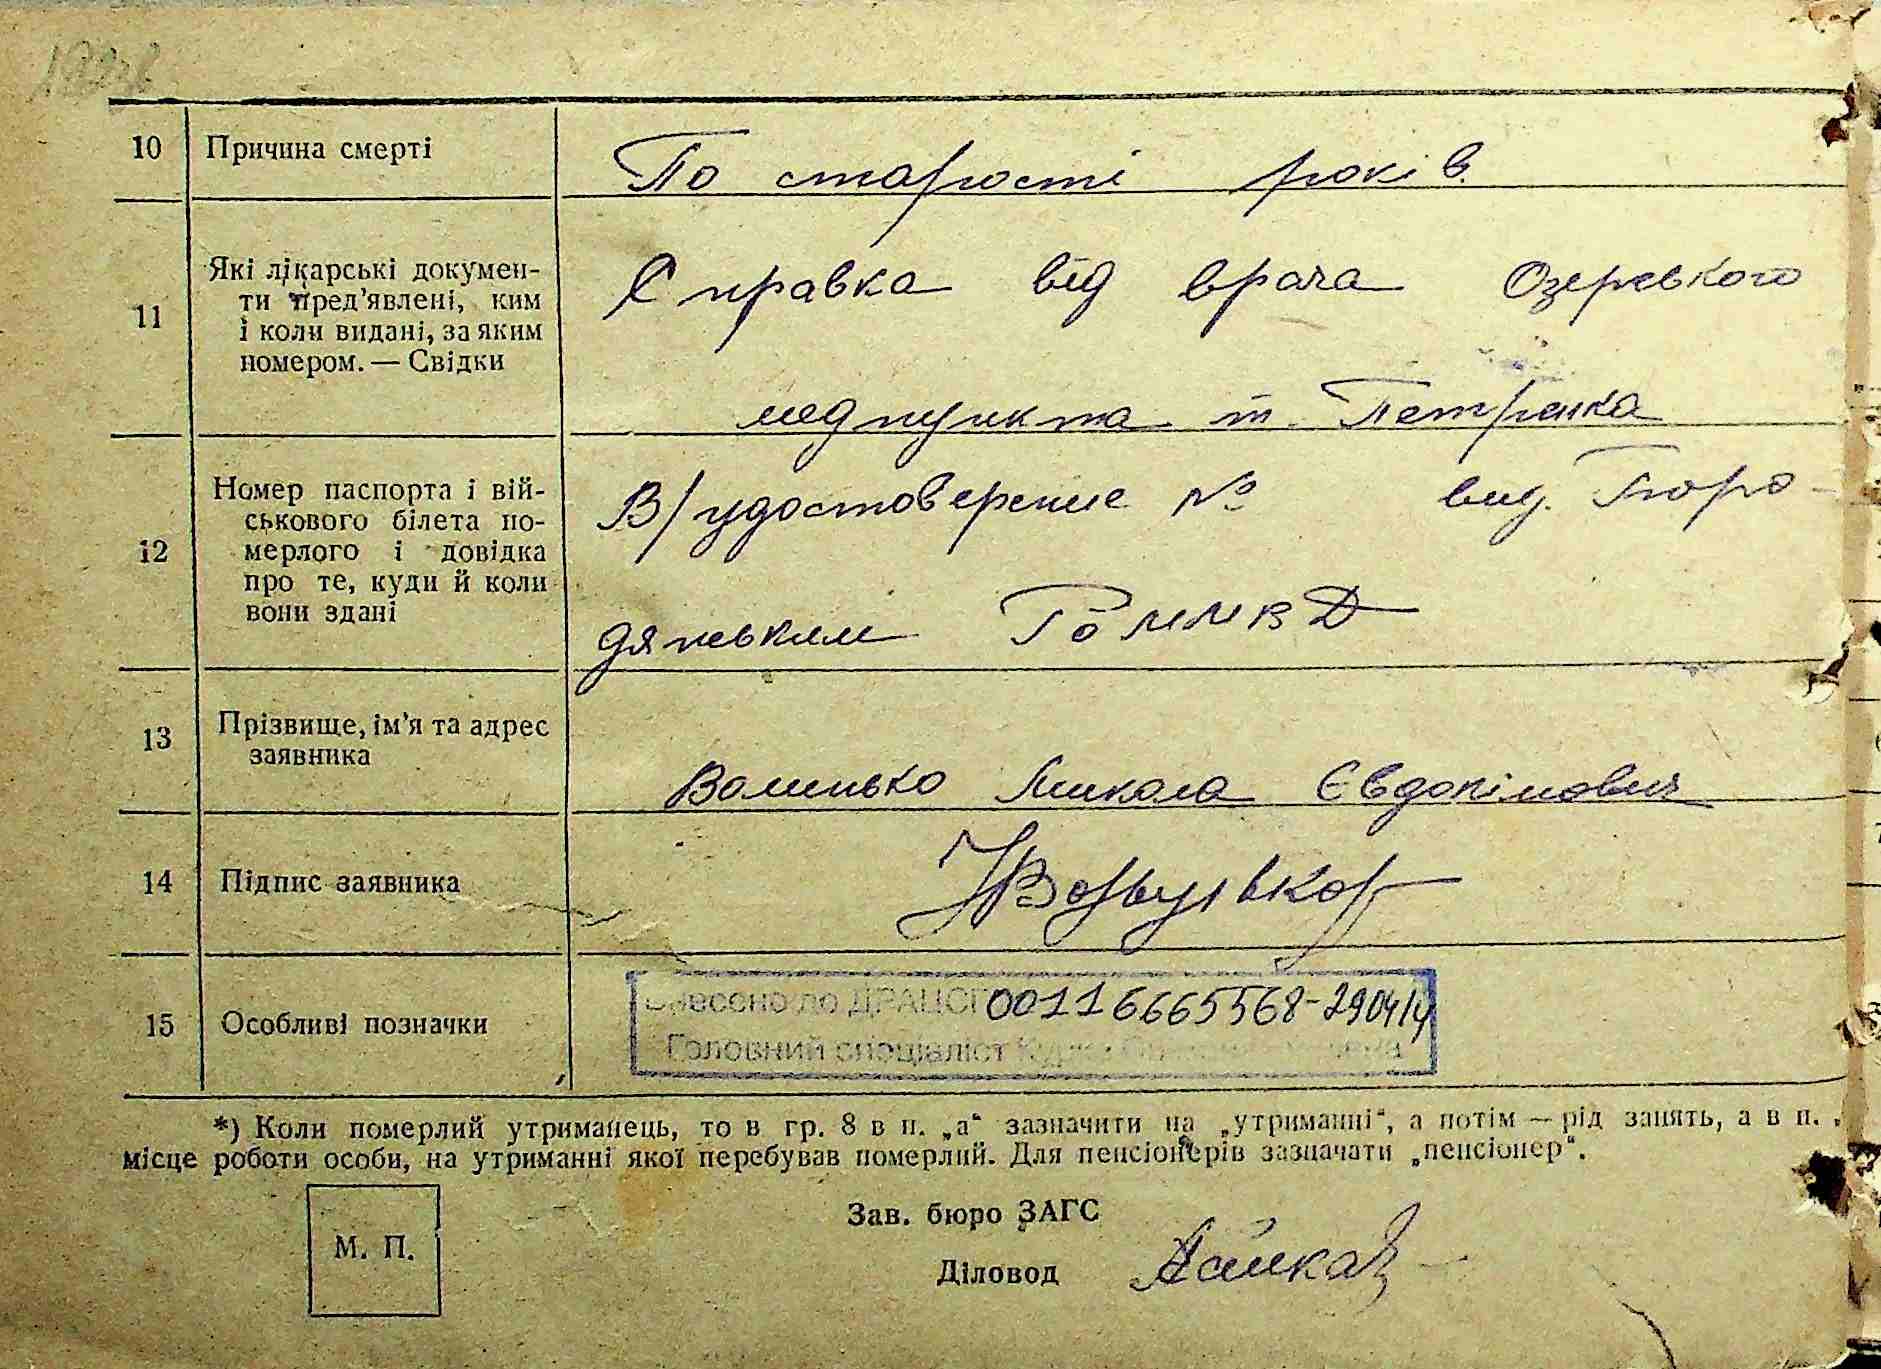 10 Причина смерті По старості років.
11 Які лікарські докумен-
ти пред’явлені, ким
і коли видані, за яким
номером. — Свідки
Справка від врача Озерського
медпункта т. Петренка
12 Номер паспорта і вій-
ськового білета по-
мерлого і довідка
про те, куди й коли
вони здані
В/удостоверение № вид. Боро-
дянським РОММВД
13 Прізвище, ім’я та адрес
заявника
Волинько Микола Євдокімович
14 Підпис заявника
15 Особливі позначки
Внесено до ДРАЦСГ 00116665568-290414
Головний спеціаліст
*) Коли померлий утриманець, то в гр. 8 в п. „а“ зазначити на „утриманні“, а потім — рід занять, а в п.
місце роботи особи, на утриманні якої перебував померлий. Для пенсіонерів зазначати „пенсіонер“.
М. П.
Зав. бюро ЗАГС
Діловод